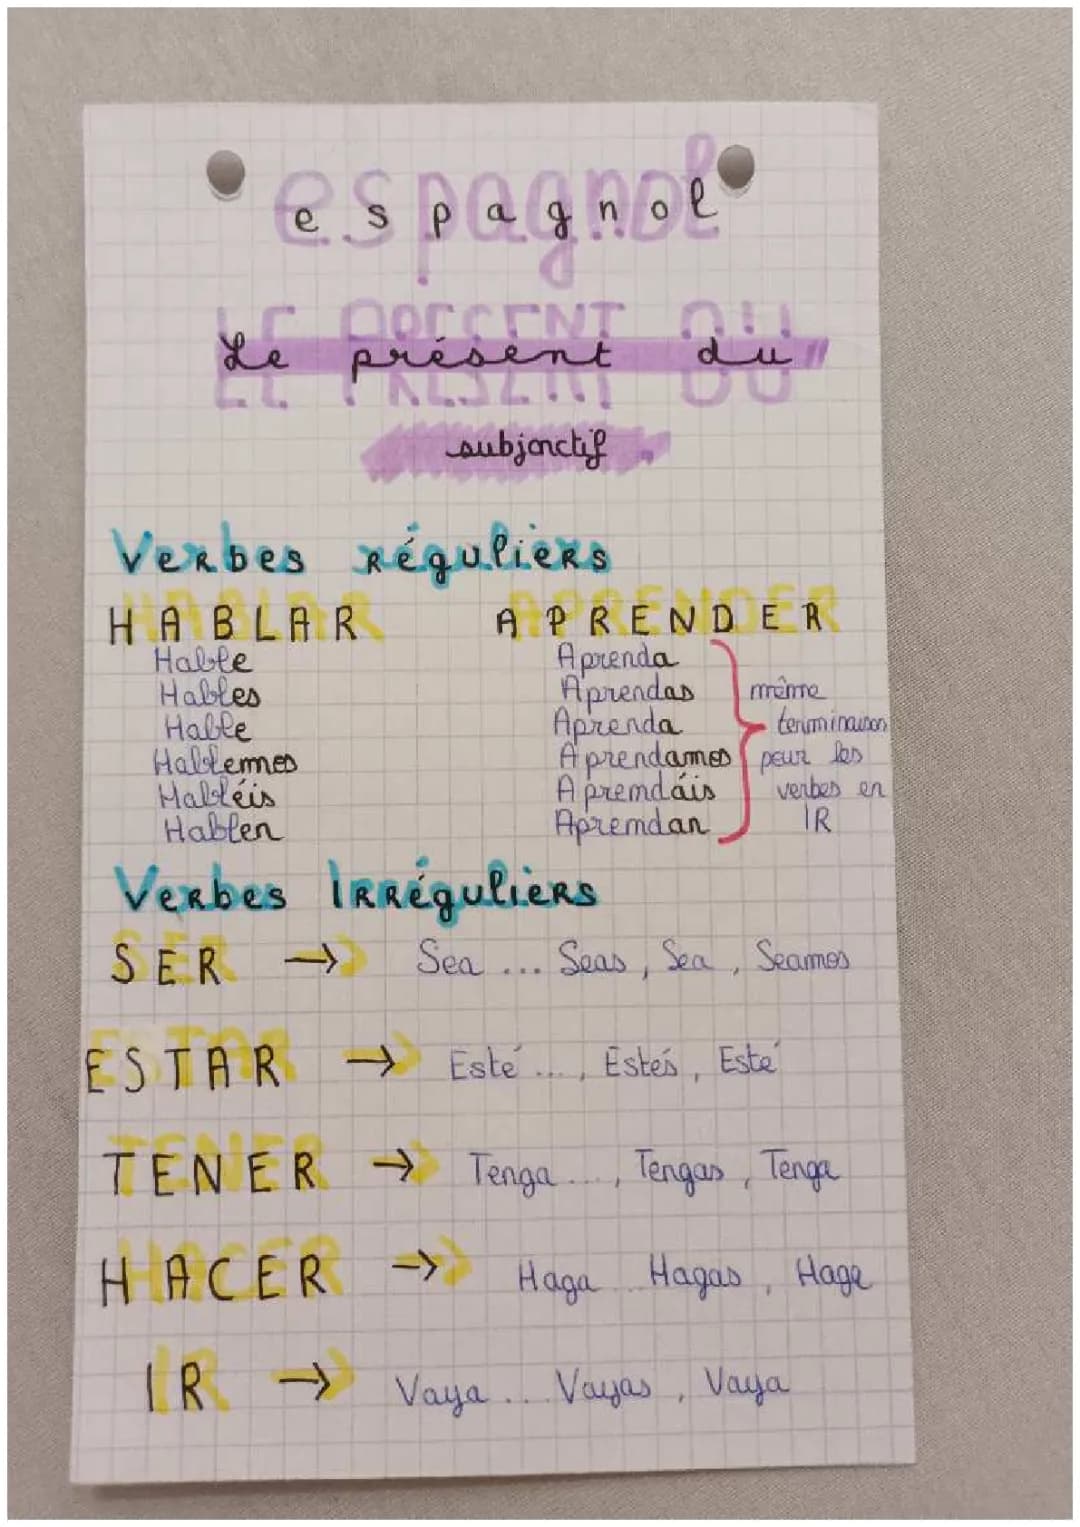 espagnol
LE PRESENT DU
Le présent du
subjonctif
Verbes réguliers
HABLAR APRENDER
Hable Aprenda
Hables Aprendas même
Hable Aprenda terminaison
Hablemos Aprendamos pour les
Habléis Aprendáis verbes en
Hablen Aprendan IR
Verbes Irréguliers
SER → Sea ... Seas, Sea, Seamos
ESTAR → Esté ..., Estés, Esté
TENER → Tenga ..., Tengas, Tenga
HACER → Haga ... Hagas, Haga
IR → Vaya ... Vayas, Vaya